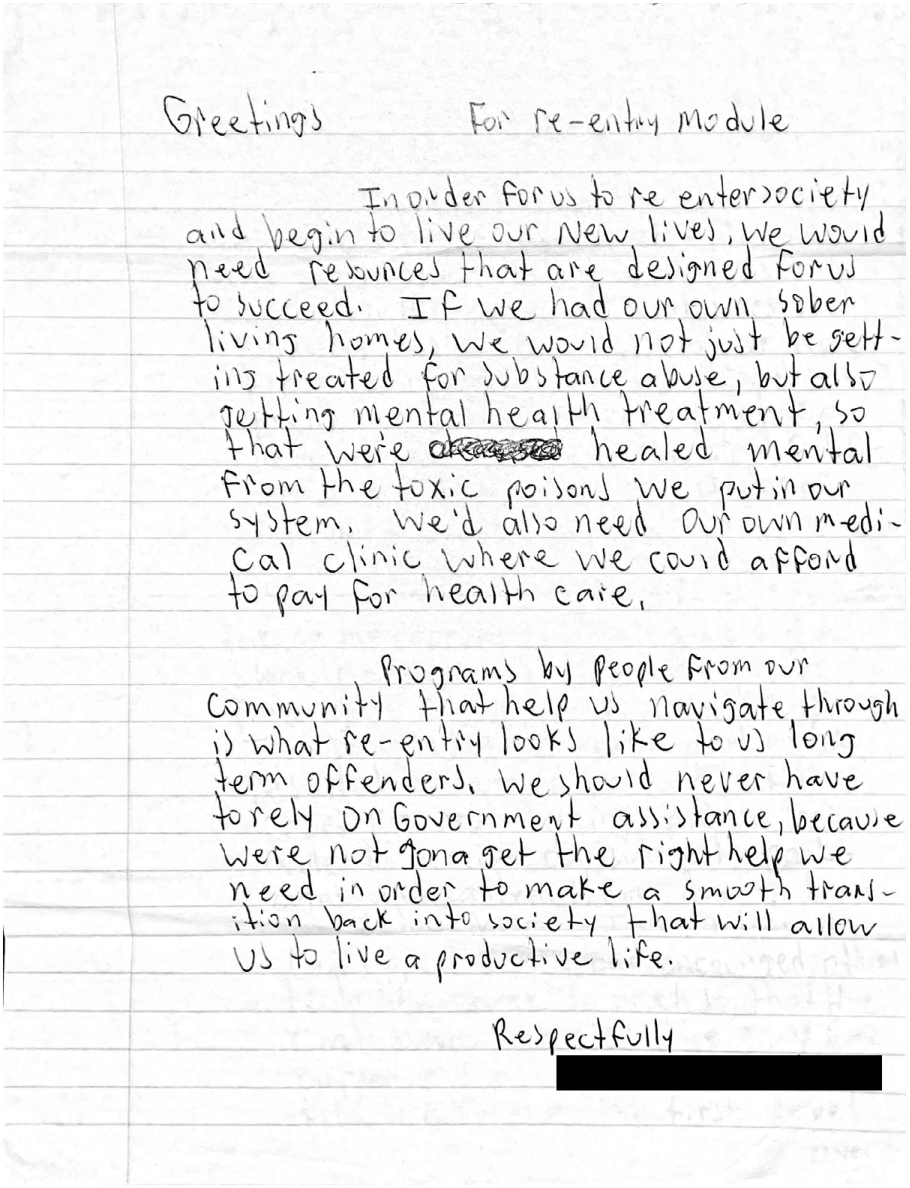 Greetings For re-entry Module
In order for us to re enter society
and begin to live our New lives, we would
need resources that are designed for us
to succeed. If we had our own sober
living homes, we would not just be gett-
ing treated for substance abuse, but also
getting mental health treatment, so
that we're healed mental
from the toxic poisons we put in our
system. We'd also need our own medi-
cal clinic where we could afford
to pay for health care.
Programs by people from our
community that help us navigate through
is what re-entry looks like to us long
term offenders. We should never have
to rely on Government assistance, because
were not gona get the right help we
need in order to make a smooth trans-
ition back into society that will allow
us to live a productive life.
Respectfully